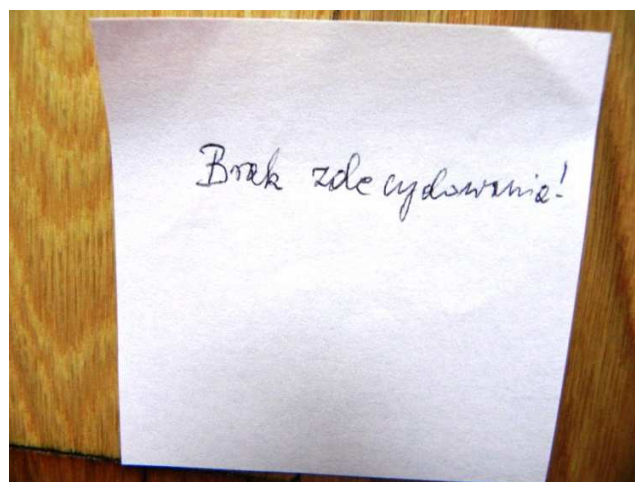 Brak zdecydowania!